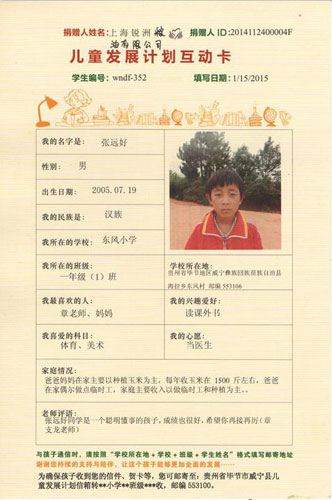 捐赠人姓名:上海锐洲 捐赠人 ID:2014112400004F
油有限公司
儿童发展计划互动卡
学生编号: wndf-352 填写日期: 1/15/2015
我的名字是: 张远好
性别: 男
出生日期: 2005.07.19
我的民族是: 汉族
我所在的学校: 东风小学
我所在的班级: 学校所在地:
一年级(1)班 贵州省毕节地区威宁彝族回族苗族自治县
海拉乡东风村 邮编 553106
我最喜欢的人: 我的兴趣爱好:
章老师、妈妈 读课外书
我喜爱的科目: 我的心愿:
体育、美术 当医生
家庭情况:
爸爸妈妈在家主要以种植玉米为主,每年收玉米在 1500 斤左右,爸爸
在家偶尔做点临时工,家庭主要收入以做临时工和种植为主。
老师评语:
张远好同学是一个聪明懂事的孩子,成绩也很好,希望你再接再厉(章
支龙老师)
与孩子通信时,请按照“学校所在地+学校+班级+学生姓名”格式填写邮寄地址
谢谢您持续的支持与陪伴,让这个孩子能够更加全面的发展……
为确保孩子收到您的信件、贺卡等,您可邮寄至:贵州省毕节市威宁县儿
童发展计划信箱转**小学**班级***收,邮编 553100。